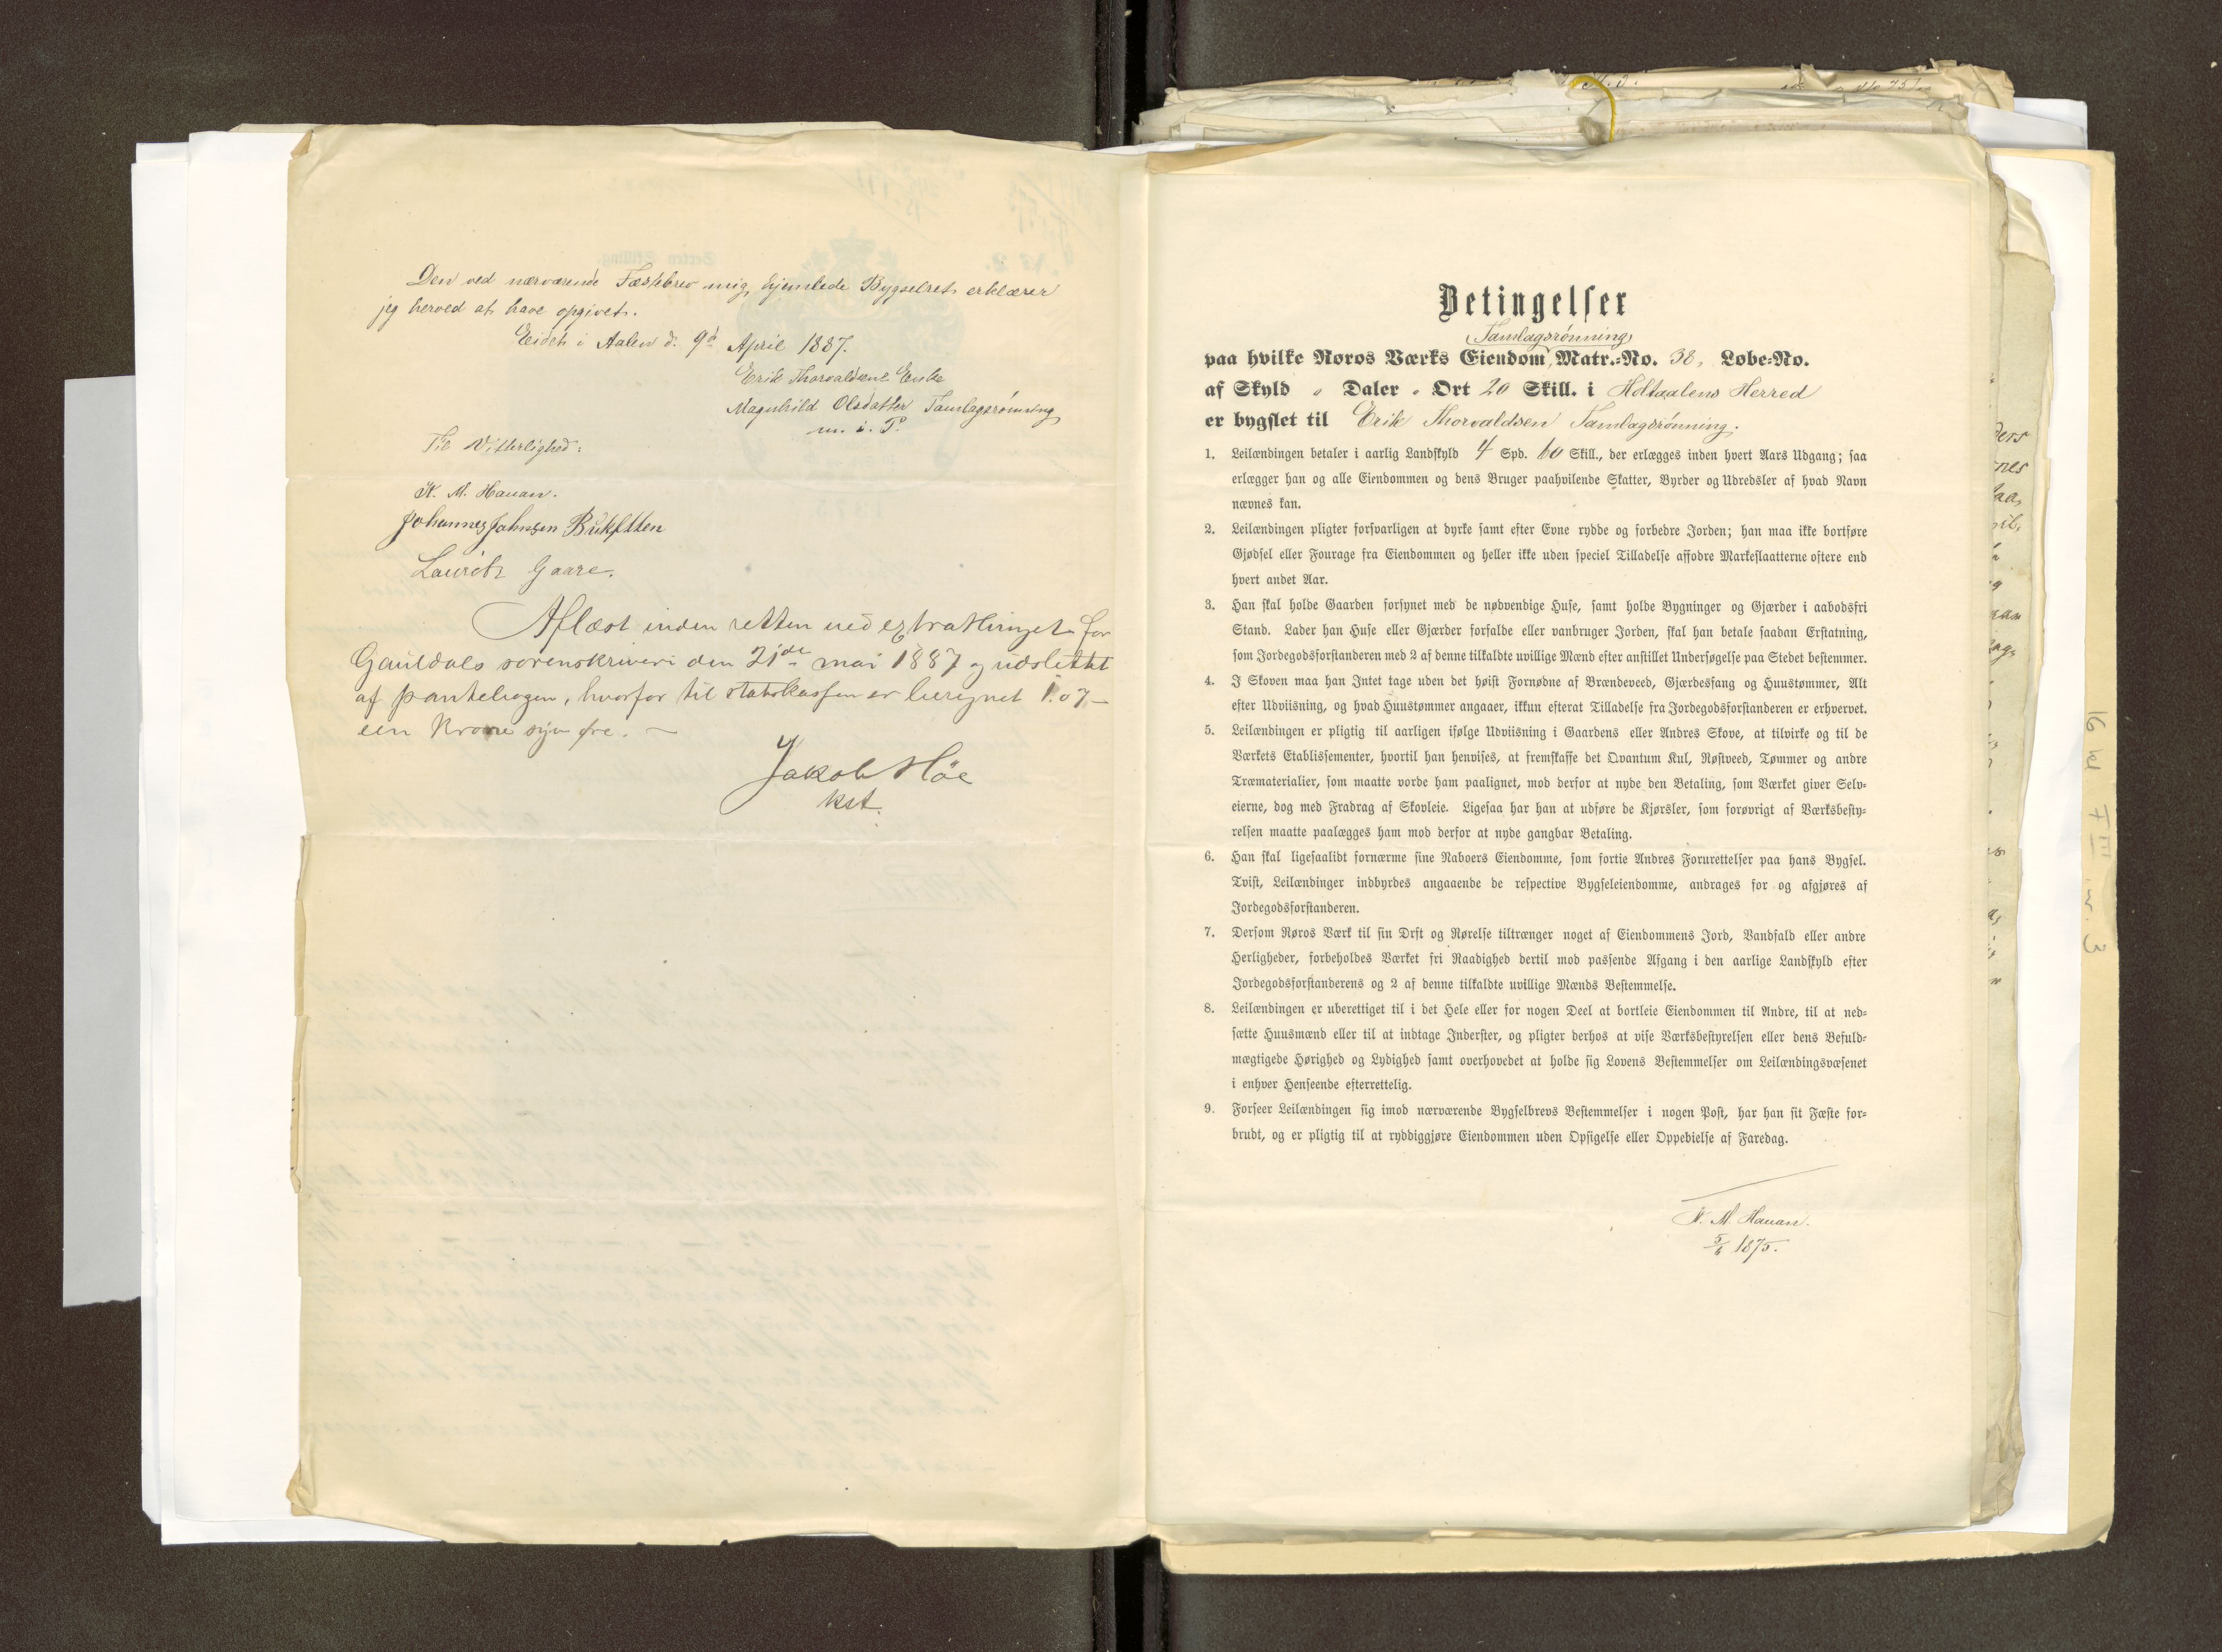 Den ved nærværende Fæstebrev mig hjemlede Bygselret erklærer
jeg herved at have opgivet.
Eidet i Aalen d. 9d April 1887.
Erik Thorvaldsens Enke
Magnhild Olsdatter Tamlagsrønning
m. i. P.
Til Vitterlighed:
K. M. Hauan.
Johannes Johnsen
Lauritz Gaare.
Aflæst inden retten ved extrathinget for
Gauldals sorenskriveri den 21de mai 1887 og udslettet
af pantebogen, hvorfor til statskassen er beregnet 1.07 –
een Krone syv øre. –
Jakob Høe
kst.
Betingelser
Tamlagsrønning
paa hvilke Røros Værks Eiendom, Matr.-No. 38, Løbe-No.
af Skyld " Daler " Ort 20 Skill. i Holtaalens Herred
er bygslet til Erik Thorvaldsen Tamlagsrønning.
1. Leilændingen betaler i aarlig Landskyld 4 Spd. 60 Skill., der erlægges inden hvert Aars Udgang; saa
erlægger han og alle Eiendommen og dens Bruger paahvilende Skatter, Byrder og Udredsler af hvad Navn
nævnes kan.
2. Leilændingen pligter forsvarligen at dyrke samt efter Evne rydde og forbedre Jorden; han maa ikke bortføre
Gjødsel eller Fourage fra Eiendommen og heller ikke uden speciel Tilladelse affodre Markeslaatterne oftere end
hvert andet Aar.
3. Han skal holde Gaarden forsynet med de nødvendige Huse, samt holde Bygninger og Gjærder i aabodsfri
Stand. Lader han Huse eller Gjærder forfalde eller vanbruger Jorden, skal han betale saadan Erstatning,
som Jordegodsforstanderen med 2 af denne tilkaldte uvillige Mænd efter anstillet Undersøgelse paa Stedet bestemmer.
4. I Skoven maa han Intet tage uden det høist Fornødne af Brændeveed, Gjærdesfang og Huustømmer, Alt
efter Udviisning, og hvad Huustømmer angaaer, ikkun efterat Tilladelse fra Jordegodsforstanderen er erhvervet.
5. Leilændingen er pligtig til aarligen ifølge Udviisning i Gaardens eller Andres Skove, at tilvirke og til de
Værkets Etablissementer, hvortil han henvises, at fremskaffe det Qvantum Kul, Røstveed, Tømmer og andre
Træmaterialier, som maatte vorde ham paalignet, mod derfor at nyde den Betaling, som Værket giver Selv-
eierne, dog med Fradrag af Skovleie. Ligesaa har han at udføre de Kjørsler, som forøvrigt af Værksbesty-
relsen maatte paalægges ham mod derfor at nyde gangbar Betaling.
6. Han skal ligesaalidt fornærme sine Naboers Eiendomme, som fortie Andres Forurettelser paa hans Bygsel.
Tvist, Leilændinger indbyrdes angaaende de respective Bygseleiendomme, andrages for og afgjøres af
Jordegodsforstanderen.
7. Dersom Røros Værk til sin Drft og Nørelse tiltrænger noget af Eiendommens Jord, Vandfald eller andre
Herligheder, forbeholdes Værket fri Raadighed dertil mod passende Afgang i den aarlige Landskyld efter
Jordegodsforstanderens og 2 af denne tilkaldte uvillige Mænds Bestemmelse.
8. Leilændingen er uberettiget til i det Hele eller for nogen Deel at bortleie Eiendommen til Andre, til at ned-
sætte Huusmænd eller til at indtage Inderster, og pligter derhos at vise Værksbestyrelsen eller dens Befuld-
mægtigede Hørighed og Lydighed samt overhovedet at holde sig Lovens Bestemmelser om Leilændingsvæsenet
i enhver Henseende efterrettelig.
9. Forseer Leilændingen sig imod nærværende Bygselbrevs Bestemmelser i nogen Post, har han sit Fæste for-
brudt, og er pligtig til at ryddiggjøre Eiendommen uden Opsigelse eller Oppebielse af Faredag.
K. M. Hauan.
5/6 1875.